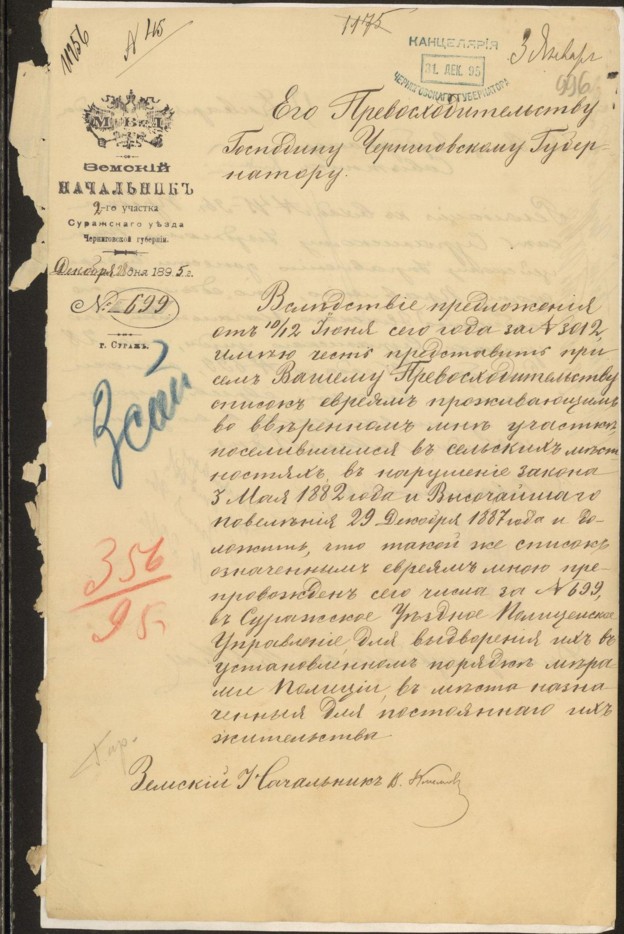 11756
N 415
1175
КАНЦЕЛЯРІЯ
31 ДЕК. 95
ЧЕРНИГОВСКАГО ГУБЕРНАТОРА
3 Январ
996
Его Превосходительству
Господину Черниговскому Губер-
натору.
М.В.Д.
Земскій
НАЧАЛЬНИКЪ
2-го участка
Суражскаго уѣзда
Черниговской губерніи.
Декабря 28 дня 1895 г.
№ 699
г. Суражъ.
Вслѣдствіе предложенія
отъ 10/12 Іюня сего года за N 3012,
имѣю честь представить при
семъ Вашему Превосходительству
списокъ евреямъ проживающимъ
во ввѣренномъ мнѣ участкѣ,
поселившимся въ сельскихъ мѣст
ностяхъ, въ нарушеніе закона
3 Мая 1882 года и Высочайшаго
повелѣнія 29 Декабря 1887 года и до-
ложить, что такой же списокъ
означеннымъ евреямъ мною пре-
провожденъ сего числа за N 699,
въ Суражское Уѣздное Полицейское
Управленіе, для выдворенія ихъ въ
установленномъ порядкѣ мѣра
ми Полиціи, въ мѣста назна-
ченныя для постояннаго ихъ
жительства
356
95
Земскій Начальникъ